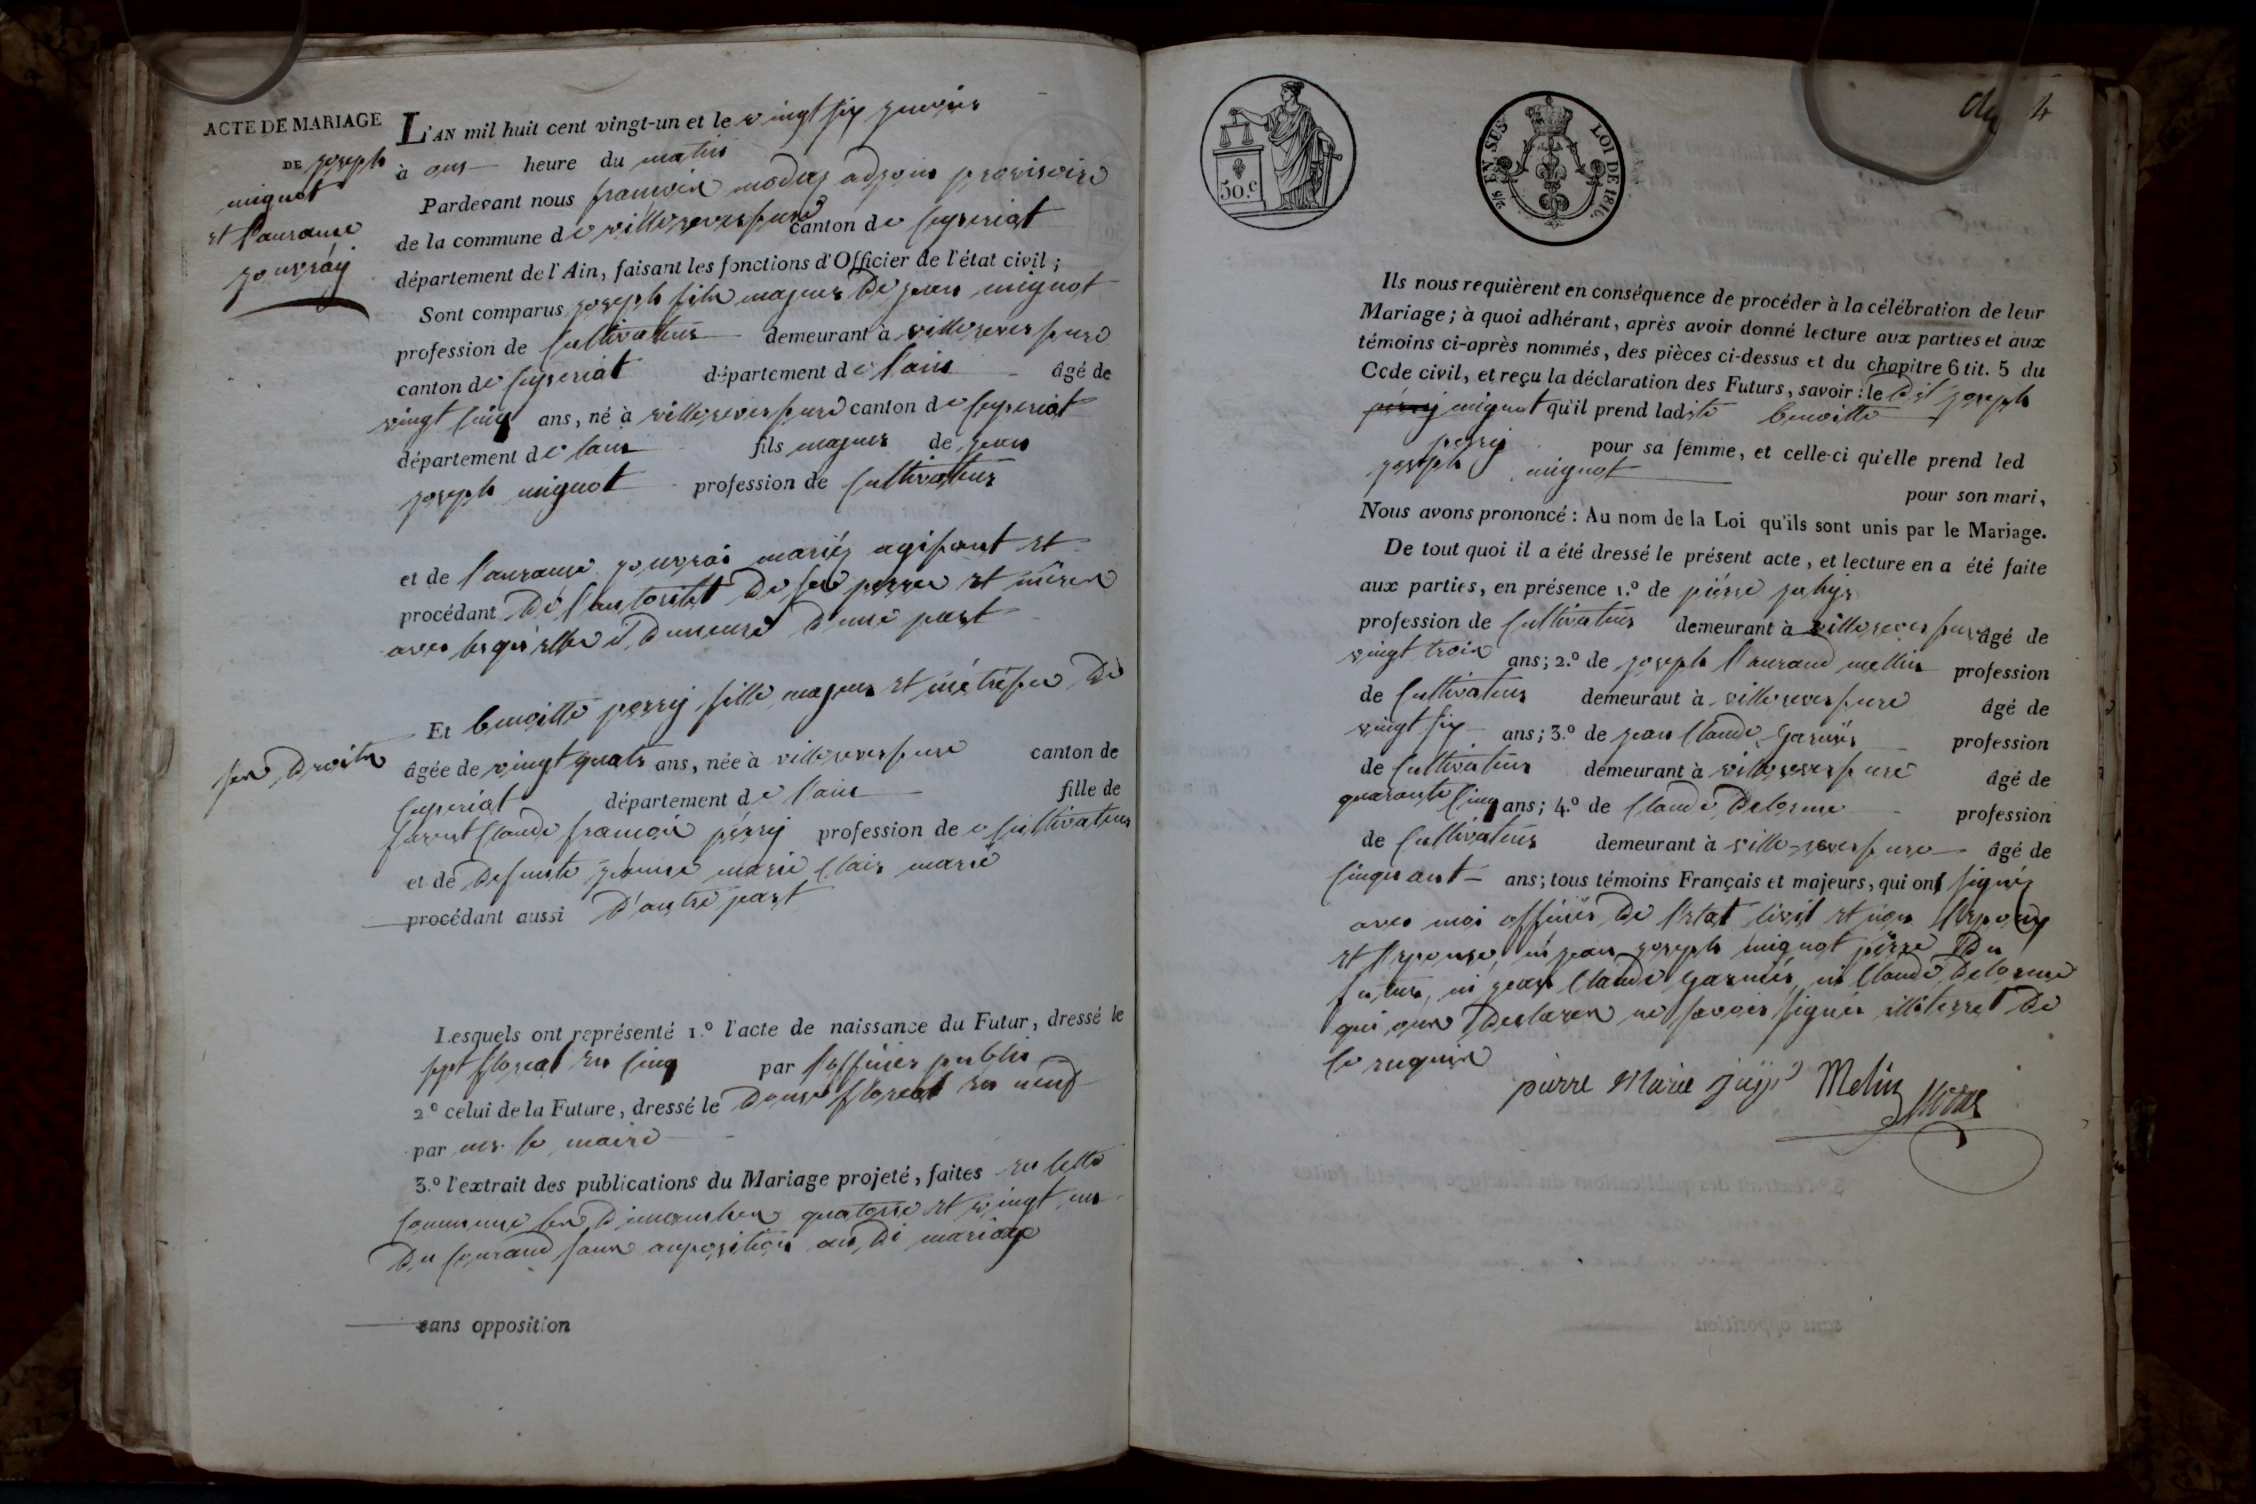 ACTE DE MARIAGE
DE joseph
mignot
et laurance
jouvray
L'AN mil huit cent vingt-un et le vingt six janvier
à onz heure du matin
Pardevant nous francois modas adjoin provisoire
de la commune de villereversure canton de ceyseriat
département de l'Ain, faisant les fonctions d'Officier de l'état civil ;
Sont comparus joseph fils majeur de jean mignot
profession de cultivateur demeurant à villereversure
canton de ceyseriat département de lain âgé de
vingt cinq ans, né à villereversure canton de ceyseriat
département de lain fils majeur de jean
joseph mignot profession de cultivateur
et de laurance jouvrai mariés agissant et
procédant de lautorité de ses perre et mères
avec lesquelles il demeure d'une part
Et benoitte perry fille majeur et métresse de
ses droits
âgée de vingt quatr ans, née à villereversure canton de
ceyseriat département de lain fille de
Claude francois perry profession de cultivateur
et de defunte marie Clair marié
procédant aussi d'autre part
Lesquels ont représenté 1.º l'acte de naissance du Futur, dressé le
sept floreal en cinq par l'officier public
2º celui de la Future, dressé le douse floreal en neuf
par mr. le maire
3.º l'extrait des publications du Mariage projeté, faites en cette
commune les dimanches quatorse et vingt un
du courand sans auposition au di mariage
sans opposition
50.c
LOI DE 1816.
4
Ils nous requièrent en conséquence de procéder à la célébration de leur
Mariage ; à quoi adhérant, après avoir donné lecture aux parties et aux
témoins ci-après nommés, des pièces ci-dessus et du chapitre 6 tit. 5 du
Code civil, et reçu la déclaration des Futurs, savoir : le dit joseph
perry mignot qu'il prend ladite benoitte
perry pour sa femme, et celle-ci qu'elle prend led
joseph mignot
pour son mari,
Nous avons prononcé : Au nom de la Loi qu'ils sont unis par le Mariage.
De tout quoi il a été dressé le présent acte, et lecture en a été faite
aux parties, en présence 1.º de pierre
profession de cultivateur demeurant à villereversure âgé de
vingt trois ans ; 2.º de joseph laurand mellin profession
de cultivateur demeurant à villereversure âgé de
vingt six ans ; 3.º de jean Claude garnier profession
de cultivateur demeurant à villereversure âgé de
quarante cinq ans ; 4.º de Claude Delorme profession
de cultivateur demeurant à villereversure âgé de
cinquant ans ; tous témoins Français et majeurs, qui ont signés
avec moi officier de l'etat civil et non l'epoux
et l'epouse, ni jean joseph mignot père du
futur, ni jean Claude garnier ni Claude Delorme
qui ons declarer ne savoir signer de
ce requis
pierre Marie Melin